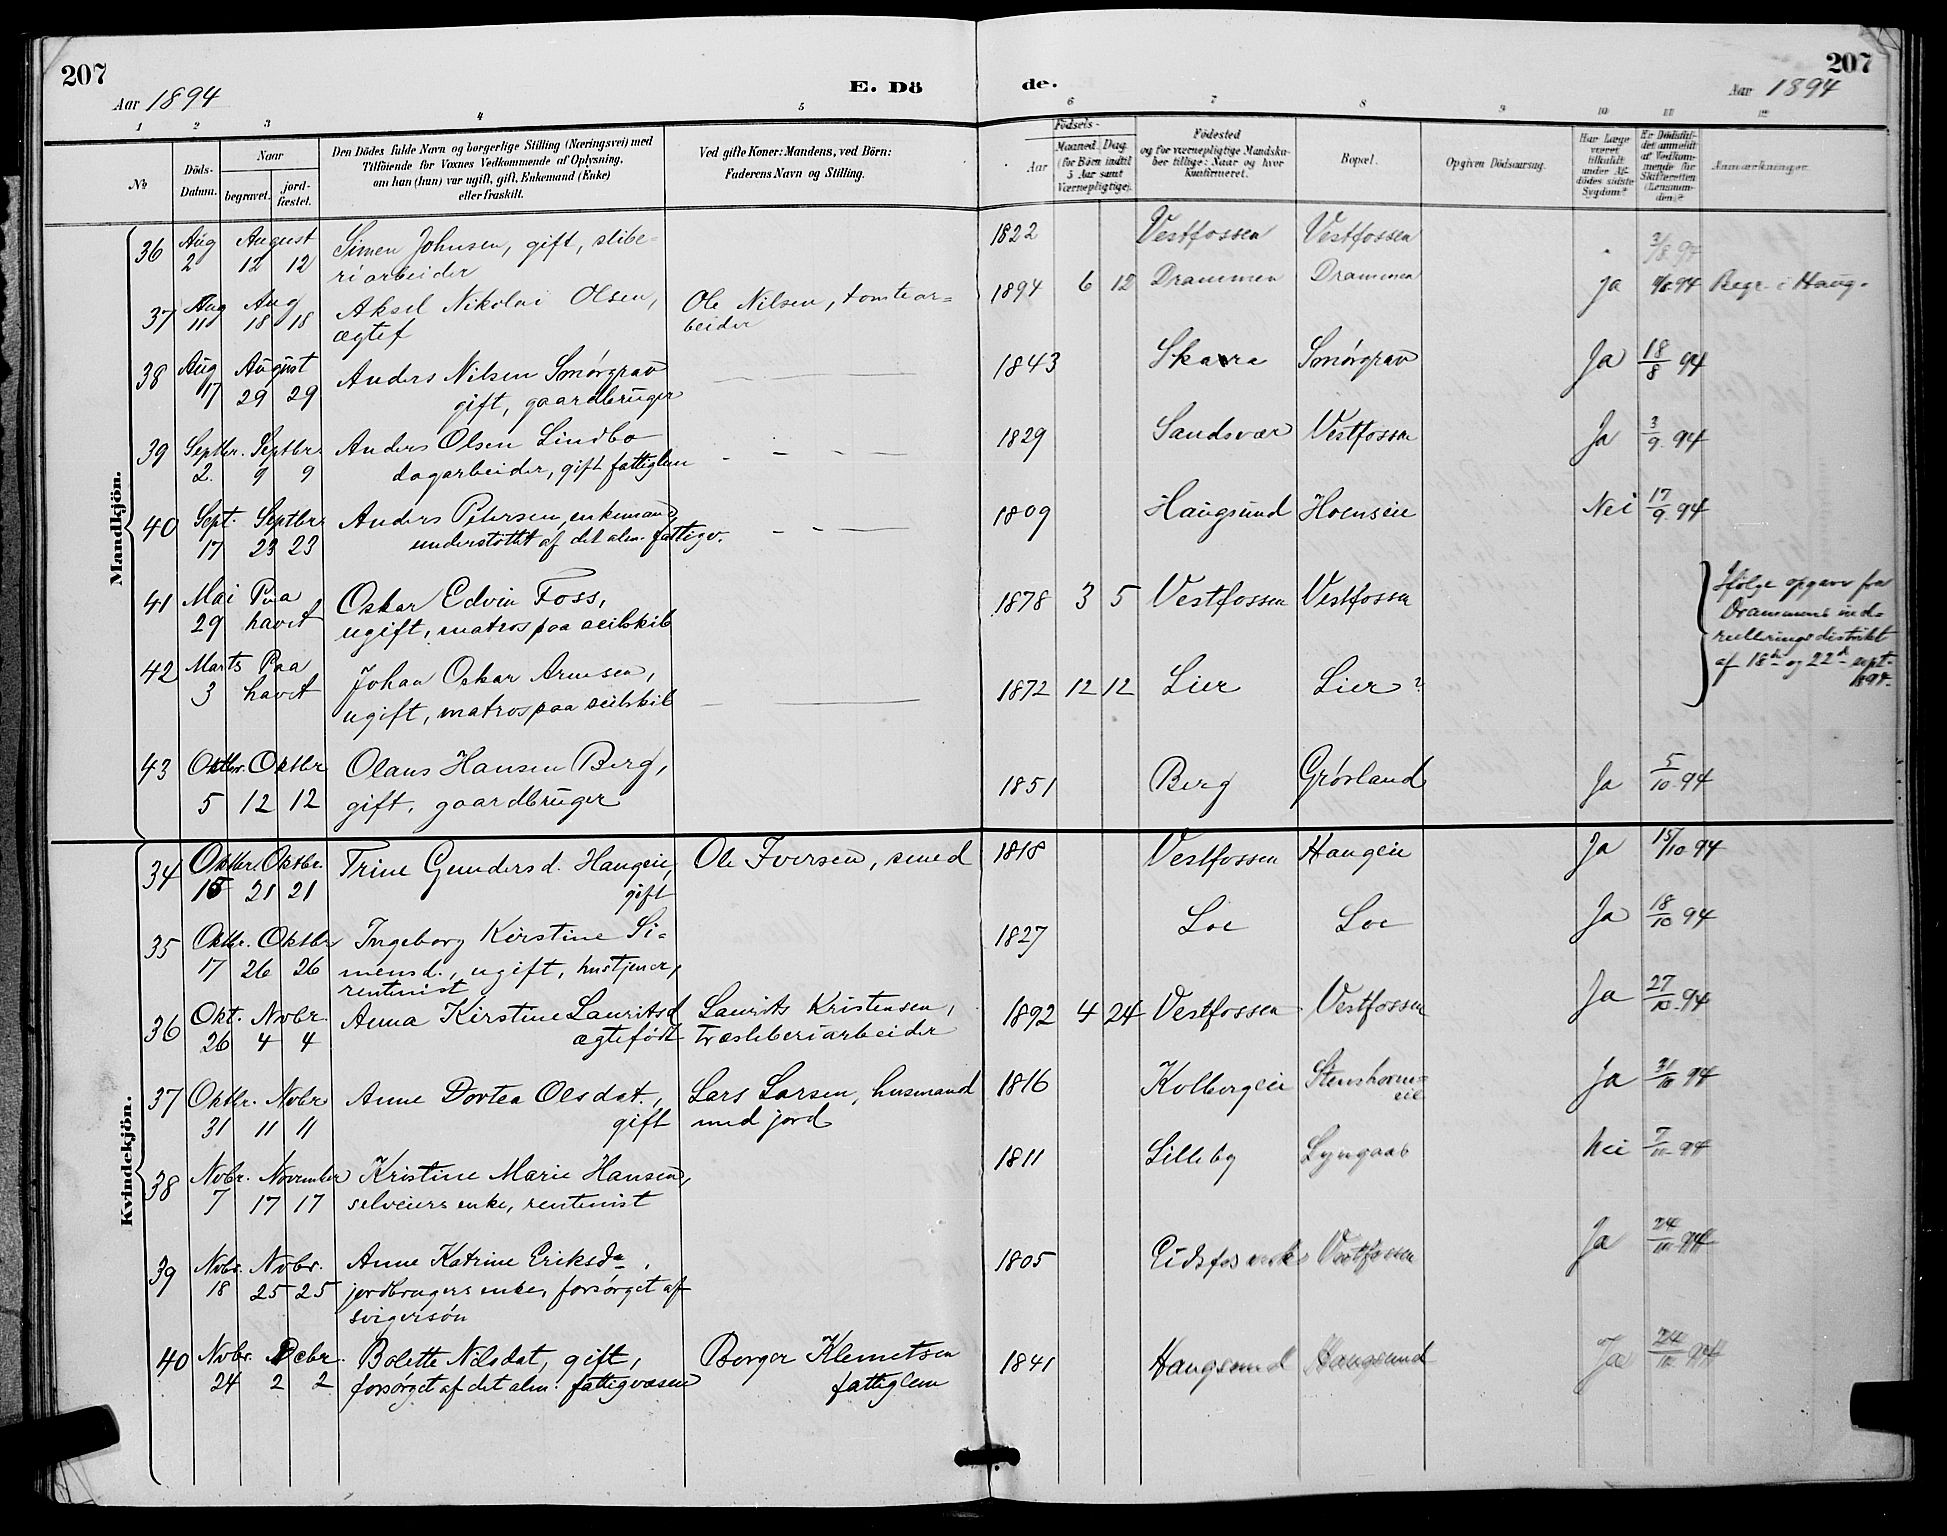 207
207
Aar 1894
E. Dö
de.
Aar 1894
1 2 3 4 5 6 7 8 9 10 11 12
No
Döds-Datum.
Naar
begravet.
jord-fæstet.
Den Dödes fulde Navn og borgerlige Stilling (Næringsvei) med
Tilföiende for Voxnes Vedkommende af Oplysning,
om han (hun) var ugift, gift, Enkemand (Enke)
eller fraskilt.
Ved gifte Koner: Mandens, ved Børn:
Faderens Navn og Stilling.
Födsels-
Aar
Maaned. Dag
(for Börn indtil
5 Aar samt
Værnepligtige).
Födested
og for værnepligtige Mandska-
ber tillige: Naar og hvor
Konfirmeret.
Bopæl.
Opgiven Dödsaarsag.
Har Læge
været
tilkaldt
under Af-
dödes sidste
Sygdom?
Er Dödsfal-
det anmeldt
af Vedkom-
mende for
Skifteretten
(Lensman-
den)?
Anmærkninger.
Mandkjön.
36 Aug 2 August 12 12 Simen Johnsen, gift, slibe-
riarbeider 1822 Vestfossen Vestfossen 3/8 94
37 Aug 11 Aug 18 18 Aksel Nikolai Olsen,
ægtef Ole Nilsen, tomtear-
beider 1894 6 12 Drammen Drammen ja 94 Begr. i Haug.
38 Aug 17 August 29 29 Anders Nilsen Smörgrav
gift, gaardbruger 1843 Skara Smörgrav Ja 18/8 94
39 Septbr. 2. Septbr. 9 9 Anders Olsen Lindbo
dagarbeider, gift fattiglem 1829 Sandsvær Vestfossen Ja 3/9. 94
40 Sept. 17 Septbr. 23 23 Anders Petersen, enkemand,
understöttet af det alm. fattigv. 1809 Haugsund Hoenseie Nei 17/9. 94
41 Mai 29 Paa havet Oskar Edvin Foss,
ugift, matros paa seilskib 1878 3 5 Vestfossen Vestfossen
Ifölge opgave fra
Drammens ind-
rulleringsdistrikt
af 18de og 22de sept.
1894.
42 Marts 3 Paa havet Johan Oskar Arnesen,
ugift, matros paa seilskib 1872 12 12 Lier Lier?
43 Oktbr. 5 Oktbr 12 12 Olaus Hansen Berg,
gift, gaardbruger 1851 Berg Grösland Ja 5/10. 94
Kvindekjön.
34 Oktbr. 15 Oktbr. 21 21 Trine Gundersd. Haugeie,
gift Ole Iversen, smed 1818 Vestfossen Haugeie Ja 15/10 94
35 Oktbr. 17 Oktbr 26 26 Ingeborg Kirstine Si-
mensd., ugift, hustjener,
rentenist 1827 Loe Loe Ja 18/10 94
36 Okt. 26 Novbr. 4 4 Anna Kirstine Lauritsd
ægtefödt Laurits Kristensen,
træsliberiarbeider 1892 4 24 Vestfossen Vestfossen Ja 27/10. 94
37 Oktbr. 31 Novbr 11 11 Anne Dortea Olsdat.,
gift Lars Larsen, husmand
med jord 1816 Kolbergeie Stenshorn-
eie Ja 31/10 94
38 Novbr. 7 November 17 17 Kristine Marie Hansen,
selveiers enke, rentenist 1811 Lilleby Lyngaas Nei 7/11. 94
39 Novbr. 18 Novbr. 25 25 Anne Katrine Eriksda,
jordbrugers enke, forsörget af
svigersön 1805 Eidsfos verk Vestfossen Ja 24/11. 94
40 Novbr. 24 Decbr. 2 2 Bolette Nilsdat, gift,
forsörget af det alm. fattigvæsen Borger Klemetsen
fattiglem 1841 Haugsund Haugsund Ja 24/11. 94